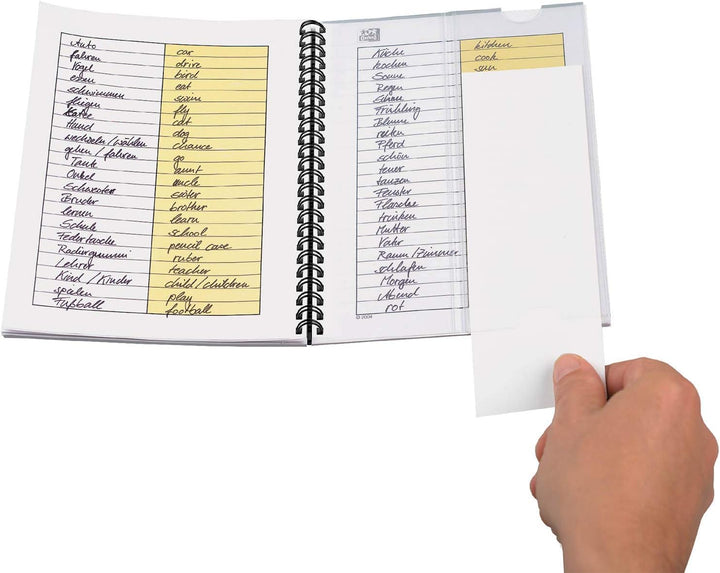 Auto car
fahren drive
Vogel bird
essen eat
schwimmen swim
fliegen fly
Katze cat
Hund dog
wechseln/wählen chance
gehen / fahren go
Tante aunt
Onkel uncle
Schwester sister
Bruder brother
lernen learn
Schule school
Federtasche pencil case
Radiergummi ruber
Lehrer teacher
Kind / Kinder child/children
spielen play
Fußball football
Küche kitchen
kochen cook
Sonne sun
Regen
Frühling
Blume
reiten
Pferd
schön
teuer
tanzen
Fenster
Flasche
trinken
Mutter
Vater
Raum/Zimmer
schlafen
Morgen
Abend
rot
© 2004